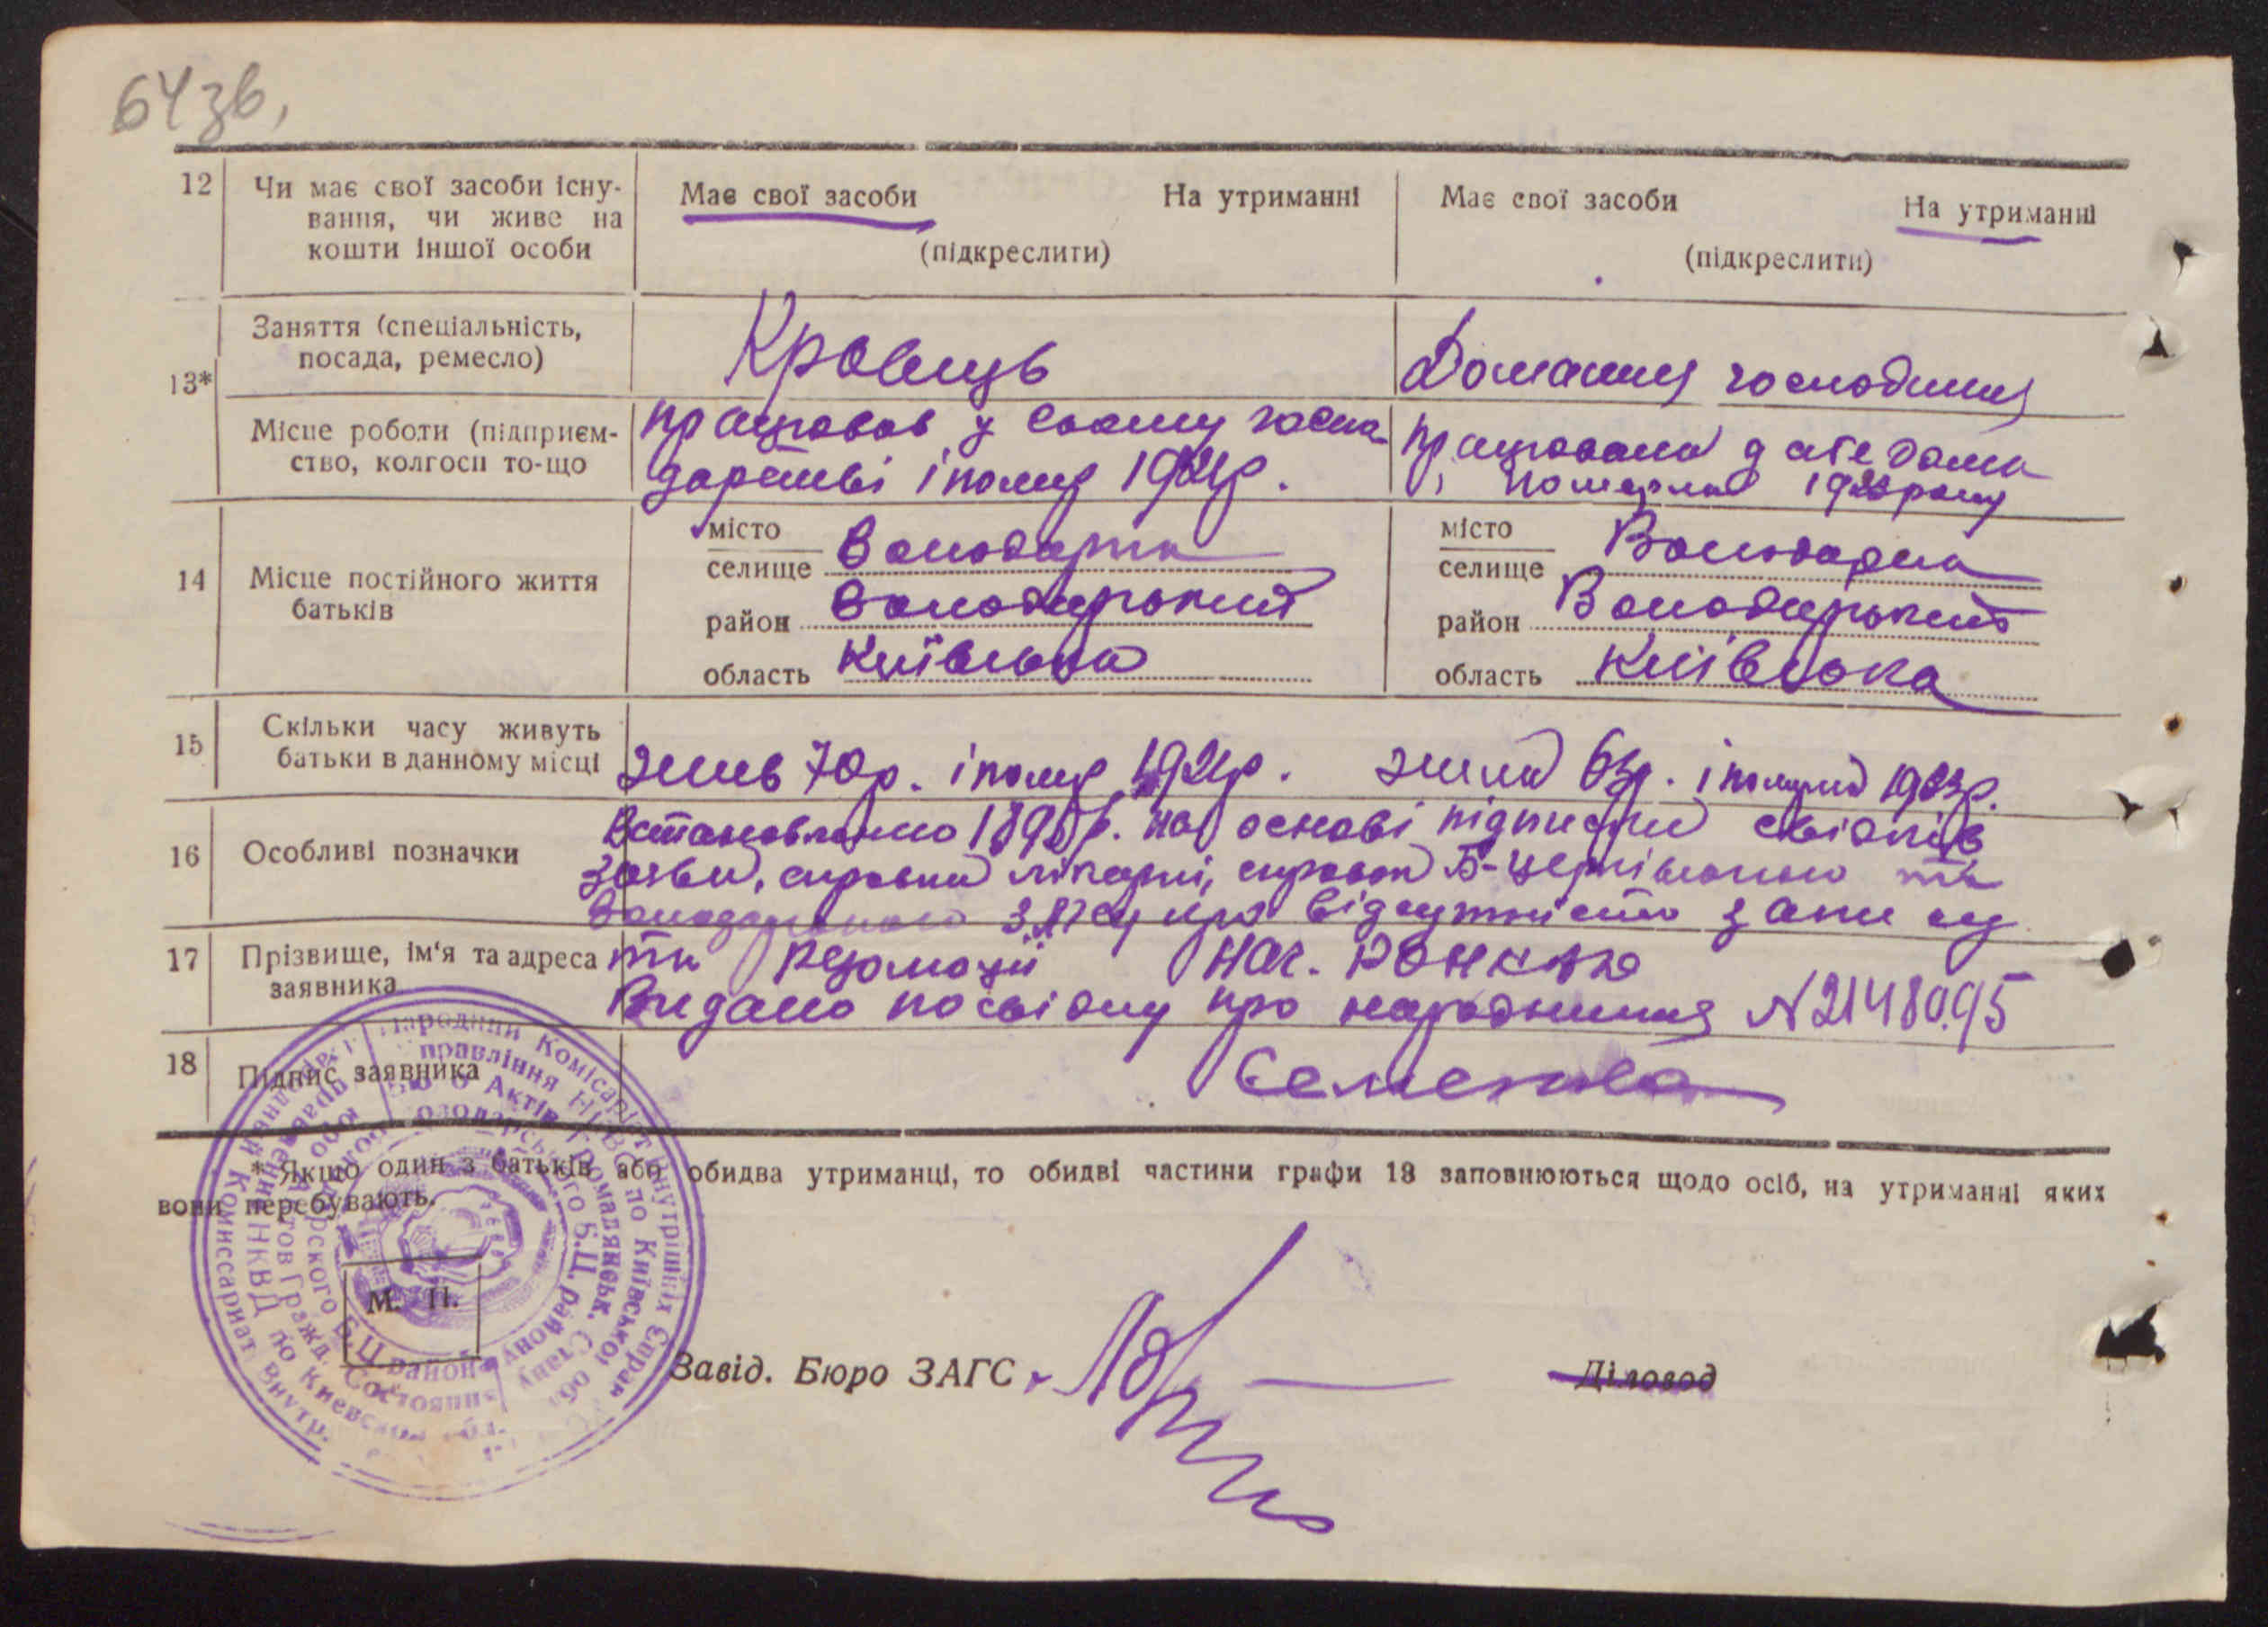 64 зв,
12
Чи має свої засоби існу-
вання, чи живе на
кошти іншої особи
Має свої засоби На утриманні
(підкреслити)
Має свої засоби На утриманні
(підкреслити)
13*
Заняття (спеціальність,
посада, ремесло)
Кравець
Домашня господиня
Місце роботи (підприєм-
ство, колгосп то-що
працював у своему госпо-
дарстві і помер 1921р.
працювала дома
і померла року
14
Місце постійного життя
батьків
місто
селище Володарка
район Володарський
область Київська
місто
селище Володарка
район Володарський
область Київська
15
Скільки часу живуть
батьки в данному місці
жив 70р. і помер 1921р. жила 63р. і померла 1923р.
16
Особливі позначки
Встановлено на основі підписки свідків
заяви, справки лікарні, справок Б-Церківського та
Володарського ЗАГСу про відсутність запису
17
Прізвище, ім'я та адреса
заявника
та резолюції нач.
Видано посвідку про народження N 2148095
18
Підпис заявника
Семенова
* Якщо один з батьків або обидва утриманці, то обидві частини графи 13 заповнюються щодо осіб, на утриманні яких
вони перебувають.
М. П.
Народний Комісаріат Внутрішніх Справ
Управління НКВС по Київській обл.
Бюро Актів Громадянськ. Стану
Володарського Б.Ц. району
Народный Комиссариат Внутр.
Управление НКВД по Киевской обл.
Бюро Актов Гражд. Состояния
Володарского Б.Ц. района
Завід. Бюро ЗАГС
Діловод